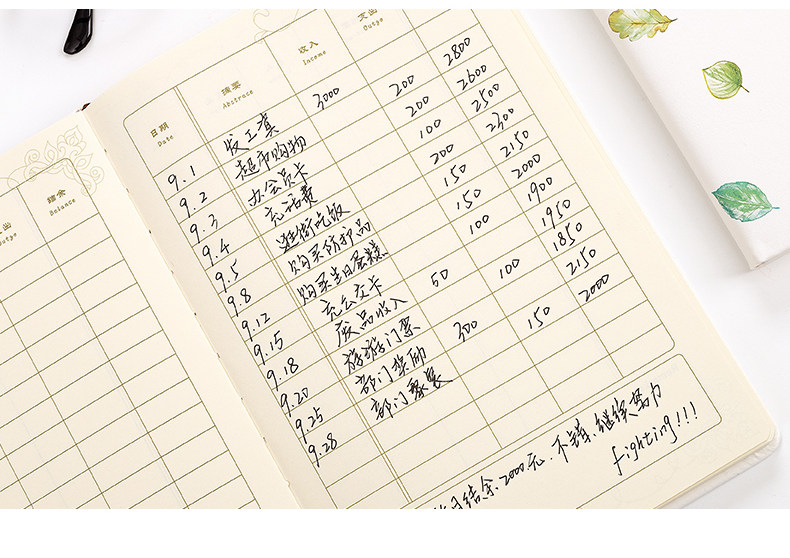 出 结余
Outye Balance
日期 摘要 收入 支出
Date Abstrace Income Outye
9.1 发工资 3000
9.2 超市购物 200 2800
9.3 办会员卡 200 2600
9.4 充话费 100 2500
9.5 逛街吃饭 200 2300
9.8 购买防护品 150 2150
9.12 购买生日蛋糕 150 2000
9.15 充公交卡 100 1900
9.18 废品收入 50 1950
9.20 旅游门票 100 1850
9.25 部门奖励 300 2150
9.28 部门聚餐 150 2000
月结余:2000元.不错,继续努力
fighting!!!